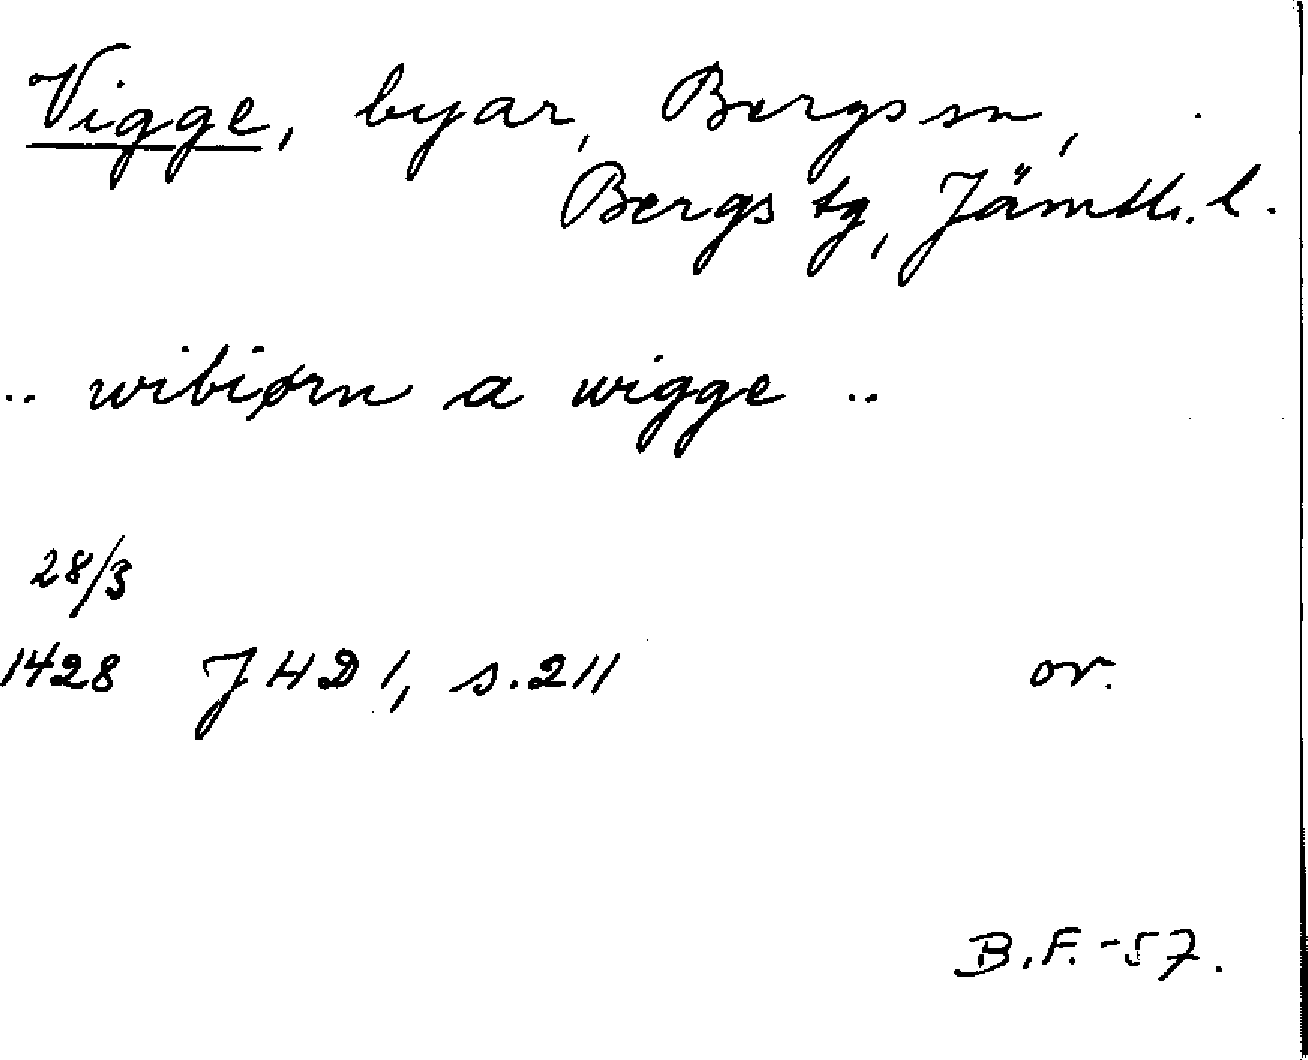 Vigge, byar, Bergs sn,
Bergs tg, Jämtl. l.
.. wibiørn a wigge ..
28/3
1428 JHD 1, s. 211 or.
B.F. -57.